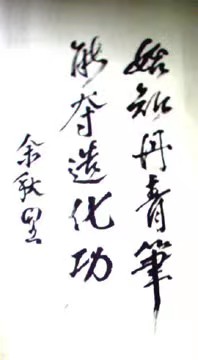 始知丹青筆
能夺造化功
余秋里